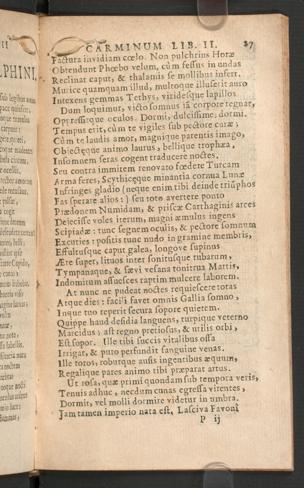 CARMINUM LIB. II. 27
Factura invidiam cœlo. Non pulchrius Horæ
Obtendunt Phœbo velum, cùm fessus in undas
Reclinat caput, & thalamis se mollibus infert.
Murice quamquam illud, multoque illuserit auro
Intexens gemmas Tethys, vitidesque lapillos.
Dum loquimur, victo somnus iã corpore tegnat,
Oppressitque oculos. Dormi, dulcissime, dormi.
Tempus erit, cùm te vigiles sub pectore curæ,
Cùm te laudis amor, magnique parentis imago,
Obiectæque animo laurus, bellique trophæa,
Insomnem seras cogent traducere noctes.
Seu contra immitem renovato fœdere Turcam
Arma feres, Scythiceque minantia cornua Lunæ
Infringes gladio (neque enim tibi deinde triũphos
Fas sperare alios:) seu toto avertere ponto
Prædonem Numidam, & priscæ Carthaginis arces
Deiecisse voles iterum, magni æmulus ingens
Scipiadæ: tunc segnem oculis, & pectore somnum
Excuties: positis tunc nudo in gramine membris,
Effultusque caput galea, longove supinus
Ære super, lituos inter sonitusque tubarum,
Tympanaque, & sævi vesana tonitrua Martis,
Indomitum assuesces raptim mulcere laborem.
At nunc ne pudeat noctes requiescere totas
Atque dies: facili favet omnis Gallia somno,
Inque tuo reperit secura sopore quietem.
Quippe haud desidia languens, turpique veterno
Marcidus: ast regno pretiosus, & utilis orbi,
Est sopor. Ille tibi succis vitalibus ossa
Irrigat, & puto perfundit sanguine venas.
Ille toros, roburque ausis ingentibus æquum,
Regalique pares animo tibi præparat artus.
Ut rosa, quæ primi quondam sub tempora veris,
Tenuis adhuc, necdum cunas egressa virentes,
Dormit, vel molli dormire videtur in umbra.
Jam tamen imperio nata est, Lasciva Favoni
P ij